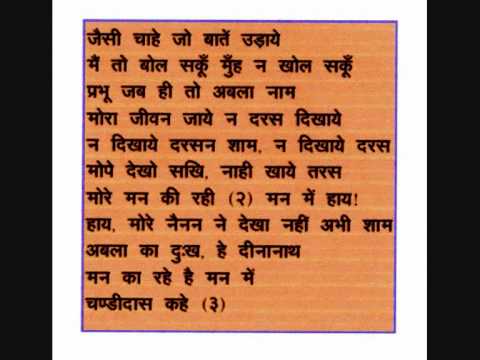 जैसी चाहे जो बातें उड़ाये
मैं तो बोल सकूँ मुँह न खोल सकूँ
प्रभू जब ही तो अबला नाम
मोरा जीवन जाये न दरस दिखाये
न दिखाये दरसन शाम, न दिखाये दरस
मोपे देखो सखि, नाही खाये तरस
मोरे मन की रही (२) मन में हाय!
हाय, मोरे नैनन ने देखा नहीं अभी शाम
अबला का दुःख, हे दीनानाथ
मन का रहे है मन में
चण्डीदास कहे (३)